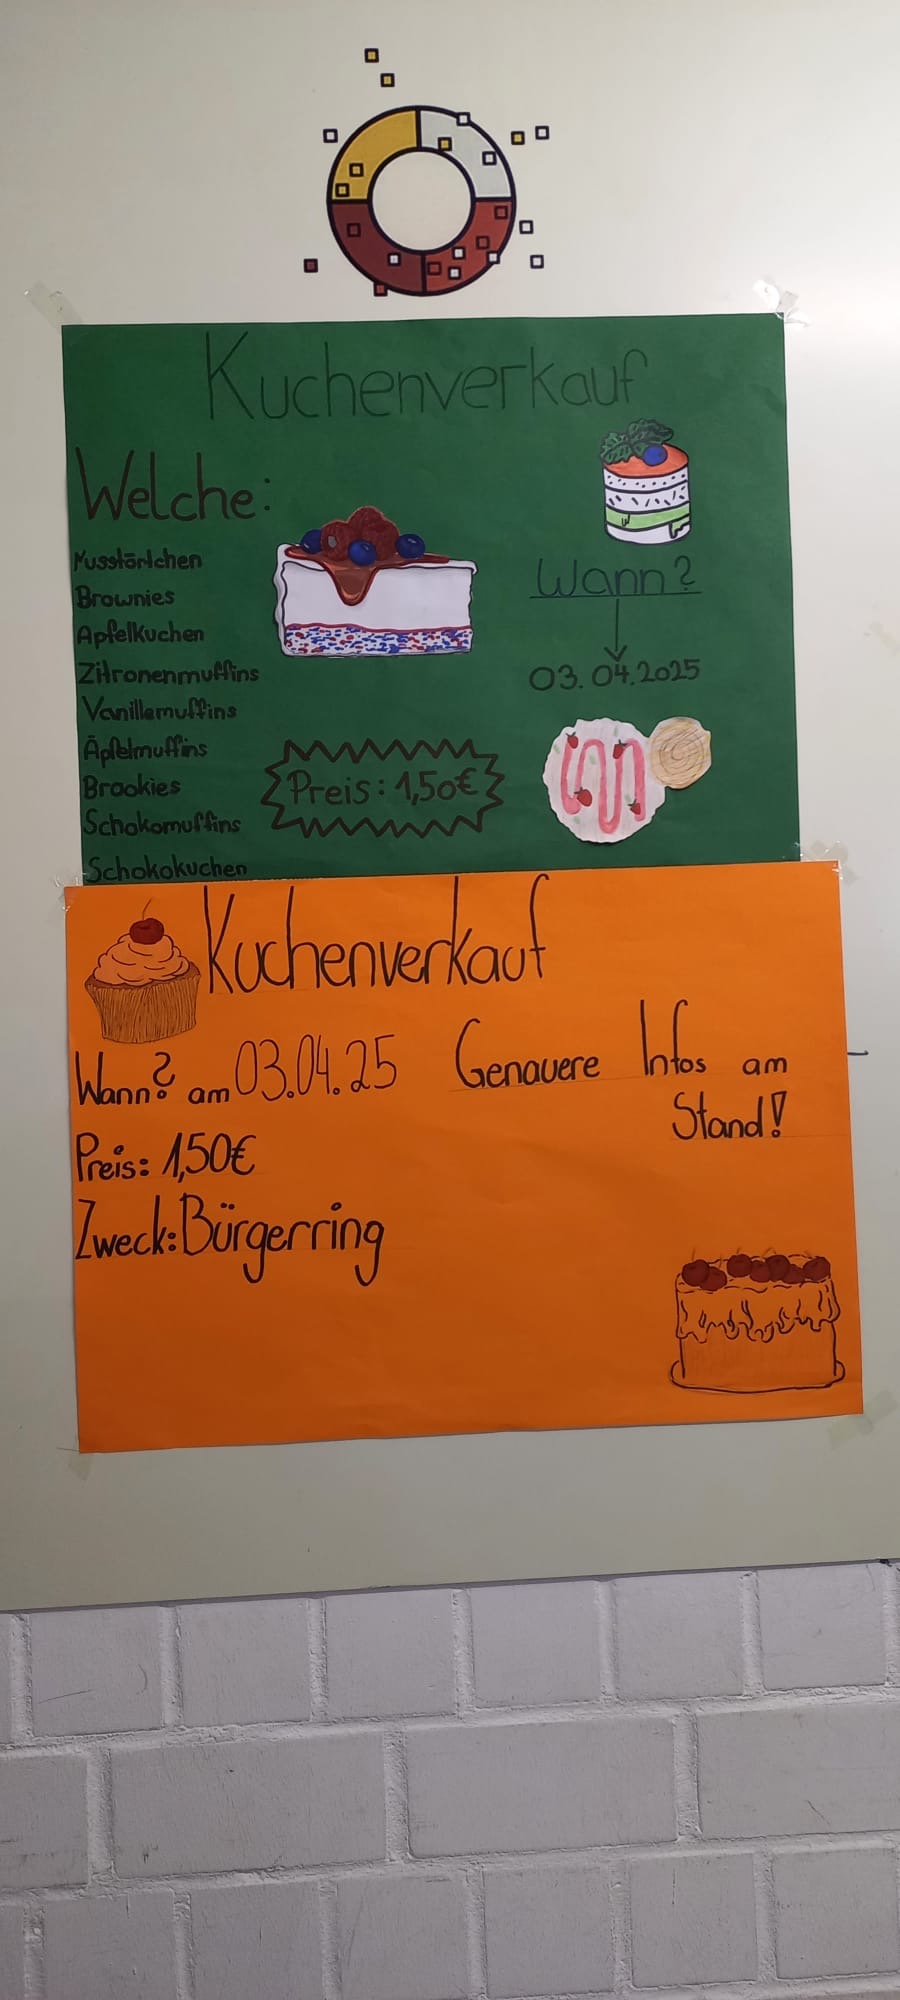 Kuchenverkauf
Welche:
Nusstörtchen
Brownies
Apfelkuchen
Zitronenmuffins
Vanillemuffins
Äpfelmuffins
Brookies
Schokomuffins
Schokokuchen
Preis: 1,50€
Wann?
03.04.2025
Kuchenverkauf
Wann? am 03.04.25
Preis: 1,50€
Zweck: Bürgerring
Genauere Infos am
Stand!